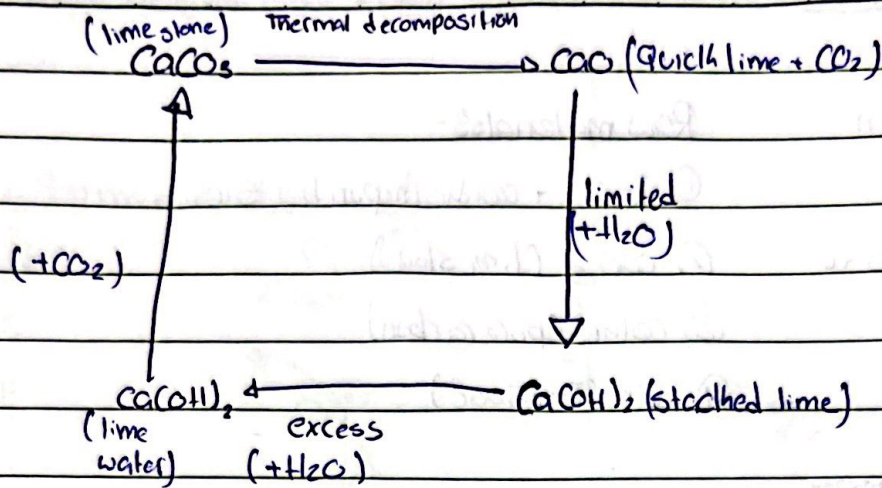 (lime stone) Thermal decomposition
CaCO₃ → CaO (Quickh lime + CO₂)
limited
(+H₂O)
(+CO₂)
Ca(OH)₂ ← Ca(OH)₂ (stacked lime)
(lime excess
water) (+H₂O)